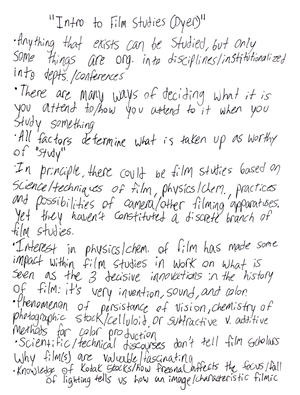 "Intro to Film Studies (Dyer)"
•Anything that exists can be studied, but only
some things are org. into disciplines/institutionalized
into depts./conferences
•There are many ways of deciding what it is
you attend to/how you attend to it when you
study something
•All factors determine what is taken up as worthy
of "study"
•In principle, there could be film studies based on
science/techniques of film, physics/chem., practices
and possibilities of camera/other filming apparatuses,
yet they haven't constituted a discrete branch of
film studies.
•Interest in physics/chem. of film has made some
impact within film studies in work on what is
seen as the 3 decisive innovations in the history
of film: it's very invention, sound, and color.
•Phenomenon of persistance of vision, chemistry of
photographic stock/celluloid, or subtractive v. additive
methods for color production
•Scientific/technical discourses don't tell film scholars
why film(s) are valuable/fascinating
•Knowledge of Kodak stocks/how fresnal affects the focus/fall
of lighting tells us how an image/characteristic filmic